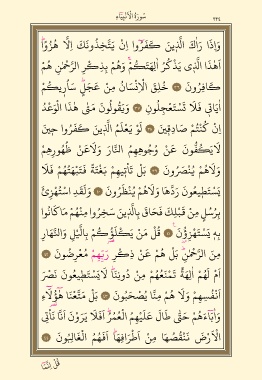 سُورَةُ الْاَنْبِيَاءِ
وَاِذَا رَاٰكَ الَّذ۪ينَ كَفَرُٓوا اِنْ يَتَّخِذُونَكَ اِلَّا هُزُوًاۜ
اَهٰذَا الَّذ۪ي يَذْكُرُ اٰلِهَتَكُمْۚ وَهُمْ بِذِكْرِ الرَّحْمٰنِ هُمْ
كَافِرُونَ ﴿٣٦﴾ خُلِقَ الْاِنْسَانُ مِنْ عَجَلٍۜ سَاُر۪يكُمْ
اٰيَات۪ي فَلَا تَسْتَعْجِلُونِ ﴿٣٧﴾ وَيَقُولُونَ مَتٰى هٰذَا الْوَعْدُ
اِنْ كُنْتُمْ صَادِق۪ينَ ﴿٣٨﴾ لَوْ يَعْلَمُ الَّذ۪ينَ كَفَرُوا ح۪ينَ
لَا يَكُفُّونَ عَنْ وُجُوهِهِمُ النَّارَ وَلَا عَنْ ظُهُورِهِمْ
وَلَا هُمْ يُنْصَرُونَ ﴿٣٩﴾ بَلْ تَأْت۪يهِمْ بَغْتَةً فَتَبْهَتُهُمْ فَلَا
يَسْتَط۪يعُونَ رَدَّهَا وَلَا هُمْ يُنْظَرُونَ ﴿٤٠﴾ وَلَقَدِ اسْتُهْزِئَ
بِرُسُلٍ مِنْ قَبْلِكَ فَحَاقَ بِالَّذ۪ينَ سَخِرُوا مِنْهُمْ مَا كَانُوا
بِه۪ يَسْتَهْزِؤُ۫نَ۟ ﴿٤١﴾ قُلْ مَنْ يَكْلَؤُ۬كُمْ بِالَّيْلِ وَالنَّهَارِ
مِنَ الرَّحْمٰنِۜ بَلْ هُمْ عَنْ ذِكْرِ رَبِّهِمْ مُعْرِضُونَ ﴿٤٢﴾
اَمْ لَهُمْ اٰلِهَةٌ تَمْنَعُهُمْ مِنْ دُونِنَاۜ لَا يَسْتَط۪يعُونَ نَصْرَ
اَنْفُسِهِمْ وَلَا هُمْ مِنَّا يُصْحَبُونَ ﴿٤٣﴾ بَلْ مَتَّعْنَا هٰٓؤُ۬لَٓاءِ
وَاٰبَٓاءَهُمْ حَتّٰى طَالَ عَلَيْهِمُ الْعُمُرُۜ اَفَلَا يَرَوْنَ اَنَّا نَأْتِي
الْاَرْضَ نَنْقُصُهَا مِنْ اَطْرَافِهَاۜ اَفَهُمُ الْغَالِبُونَ ﴿٤٤﴾
قُلْ اِنَّمَٓا